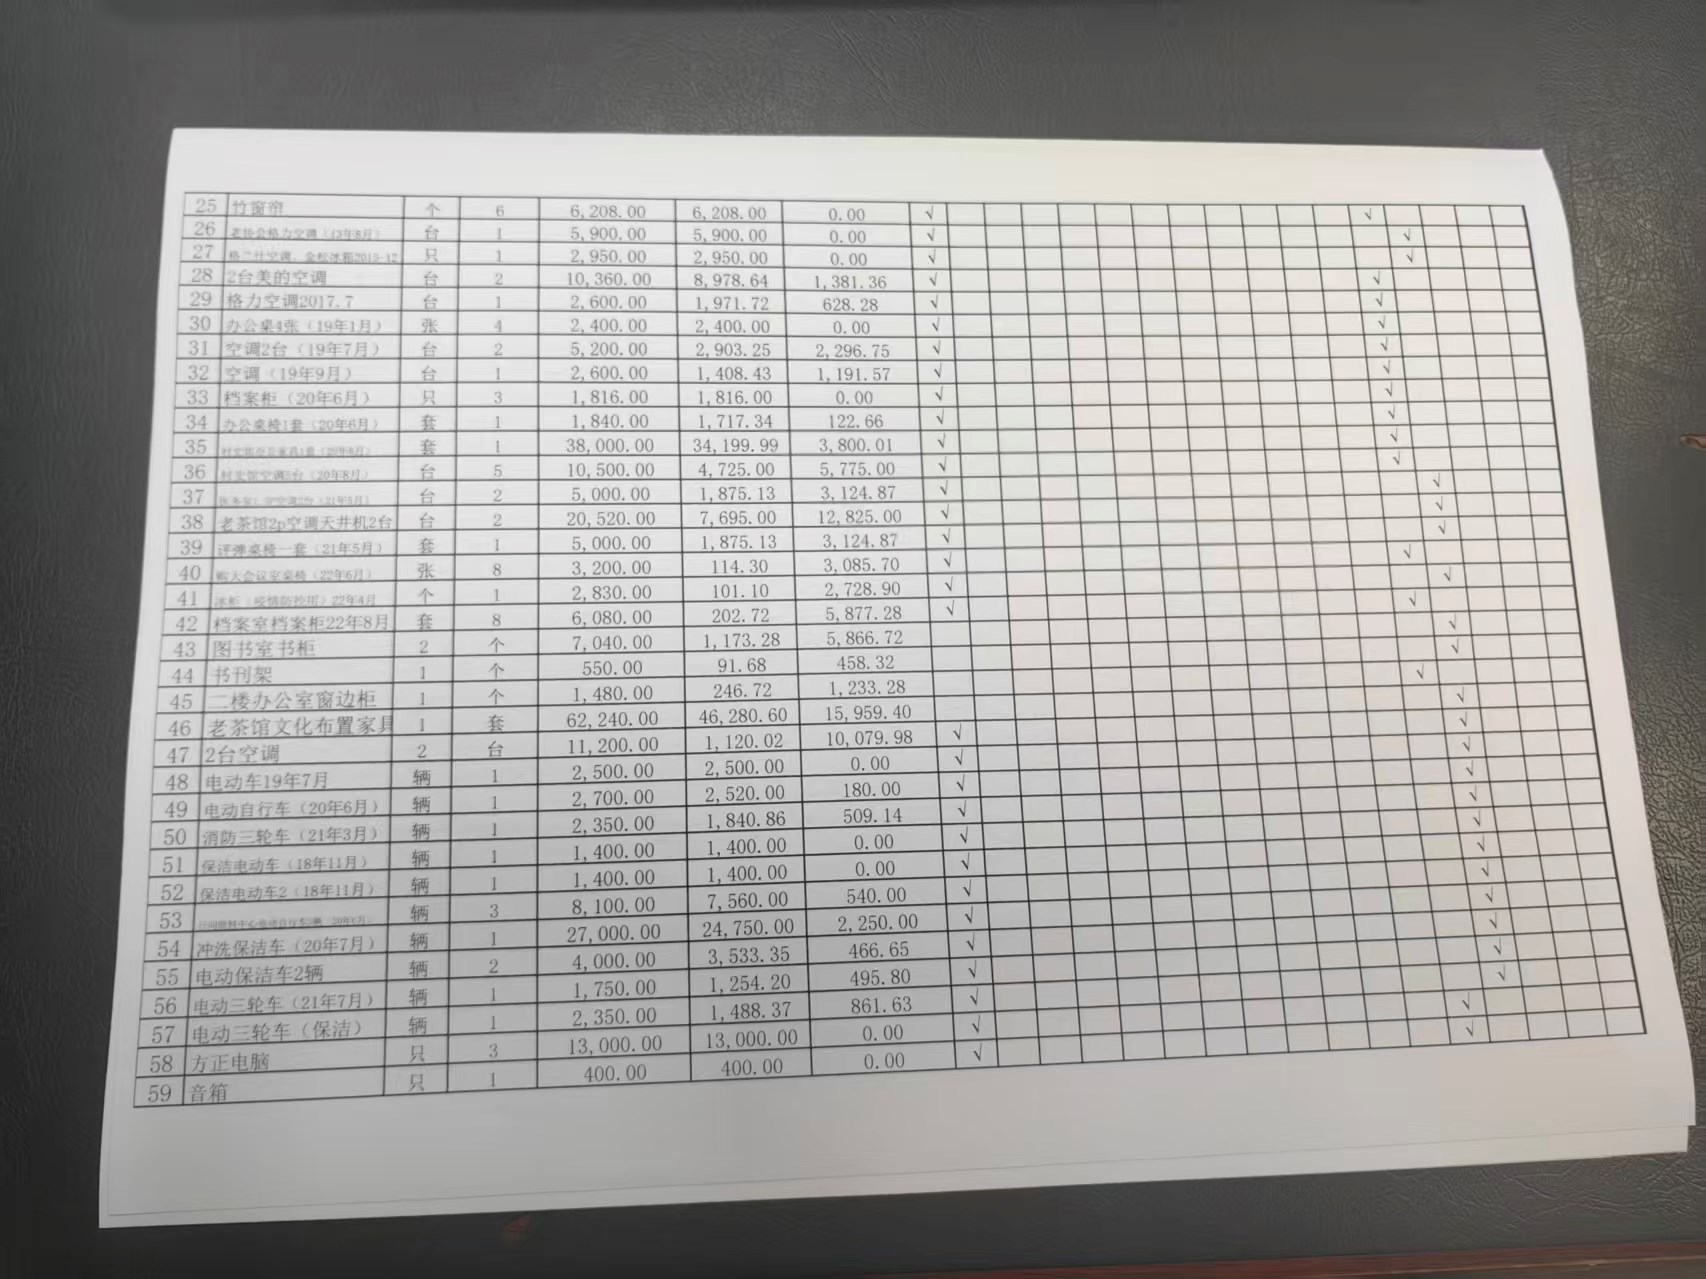 25 竹窗帘 个 6 6,208.00 6,208.00 0.00 √ √
26 老协会格力空调（13年8月） 台 1 5,900.00 5,900.00 0.00 √ √
27 空调、金松冰箱2015-12 只 1 2,950.00 2,950.00 0.00 √ √
28 2台美的空调 台 2 10,360.00 8,978.64 1,381.36 √ √
29 格力空调2017.7 台 1 2,600.00 1,971.72 628.28 √ √
30 办公桌4张（19年1月） 张 4 2,400.00 2,400.00 0.00 √ √
31 空调2台（19年7月） 台 2 5,200.00 2,903.25 2,296.75 √ √
32 空调（19年9月） 台 1 2,600.00 1,408.43 1,191.57 √ √
33 档案柜（20年6月） 只 3 1,816.00 1,816.00 0.00 √ √
34 办公桌椅1套（20年6月） 套 1 1,840.00 1,717.34 122.66 √ √
35 套 1 38,000.00 34,199.99 3,800.01 √ √
36 村史馆空调5台（20年8月） 台 5 10,500.00 4,725.00 5,775.00 √ √
37 台 2 5,000.00 1,875.13 3,124.87 √ √
38 老茶馆2p空调天井机2台 台 2 20,520.00 7,695.00 12,825.00 √ √
39 评弹桌椅一套（21年5月） 套 1 5,000.00 1,875.13 3,124.87 √ √
40 购大会议室桌椅（22年6月） 张 8 3,200.00 114.30 3,085.70 √ √
41 冰柜（疫情防控用）22年4月 个 1 2,830.00 101.10 2,728.90 √ √
42 档案室档案柜22年8月 套 8 6,080.00 202.72 5,877.28 √ √
43 图书室书柜 2 个 7,040.00 1,173.28 5,866.72 √
44 书刊架 1 个 550.00 91.68 458.32 √
45 二楼办公室窗边柜 1 个 1,480.00 246.72 1,233.28 √
46 老茶馆文化布置家具 1 套 62,240.00 46,280.60 15,959.40 √
47 2台空调 2 台 11,200.00 1,120.02 10,079.98 √ √
48 电动车19年7月 辆 1 2,500.00 2,500.00 0.00 √ √
49 电动自行车（20年6月） 辆 1 2,700.00 2,520.00 180.00 √ √
50 消防三轮车（21年3月） 辆 1 2,350.00 1,840.86 509.14 √ √
51 保洁电动车（18年11月） 辆 1 1,400.00 1,400.00 0.00 √ √
52 保洁电动车2（18年11月） 辆 1 1,400.00 1,400.00 0.00 √ √
53 辆 3 8,100.00 7,560.00 540.00 √ √
54 冲洗保洁车（20年7月） 辆 1 27,000.00 24,750.00 2,250.00 √ √
55 电动保洁车2辆 辆 2 4,000.00 3,533.35 466.65 √ √
56 电动三轮车（21年7月） 辆 1 1,750.00 1,254.20 495.80 √ √
57 电动三轮车（保洁） 辆 1 2,350.00 1,488.37 861.63 √ √
58 方正电脑 只 3 13,000.00 13,000.00 0.00 √ √
59 音箱 只 1 400.00 400.00 0.00 √ √